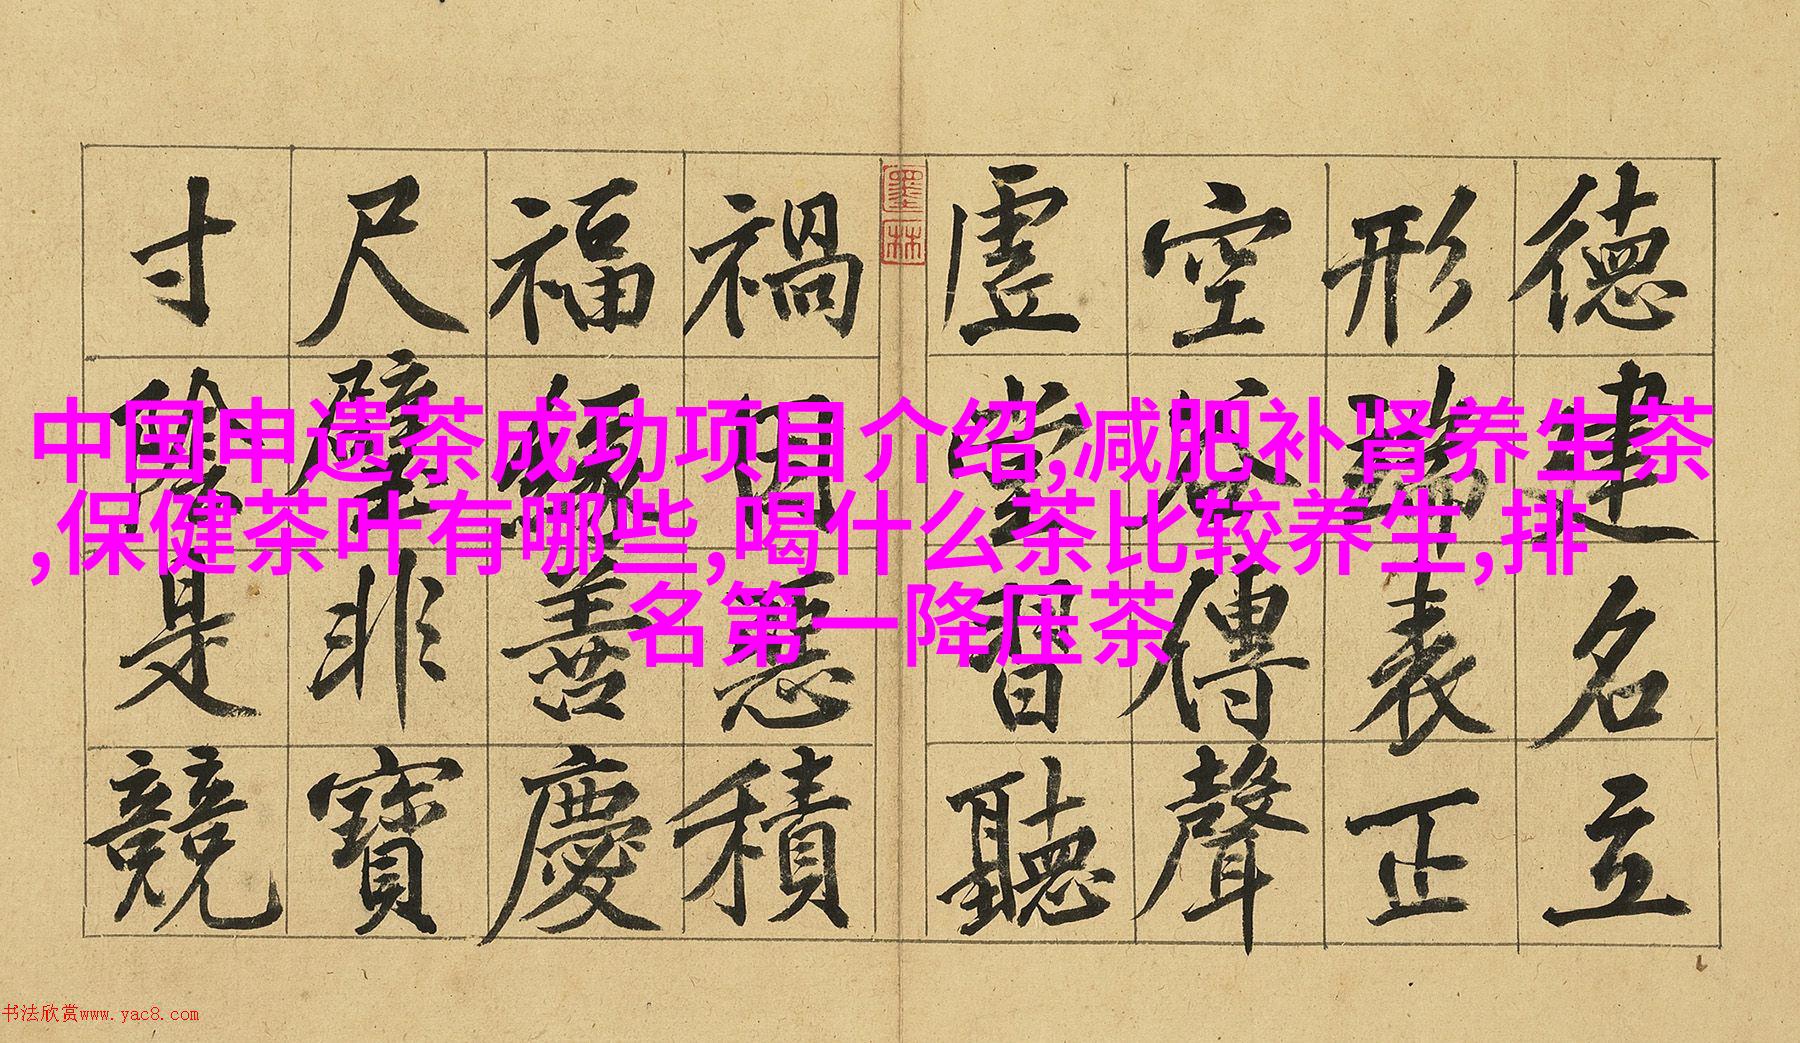 德建名立
形端表正
空谷傳聲
虛堂習聽
墨林
禍因惡積
福緣善慶
尺璧非寶
寸陰是競
中国申遗茶成功项目介绍,减肥补肾养生茶
,保健茶叶有哪些,喝什么茶比较养生,排
名第一降压茶
书法欣赏www.yac8.com